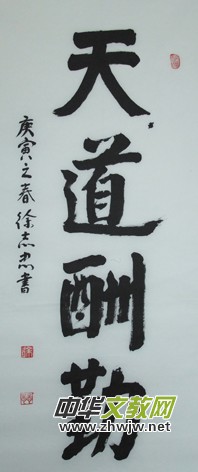 天道酬勤
庚寅之春 徐志忠書
中华文教网
www.zhwjw.net